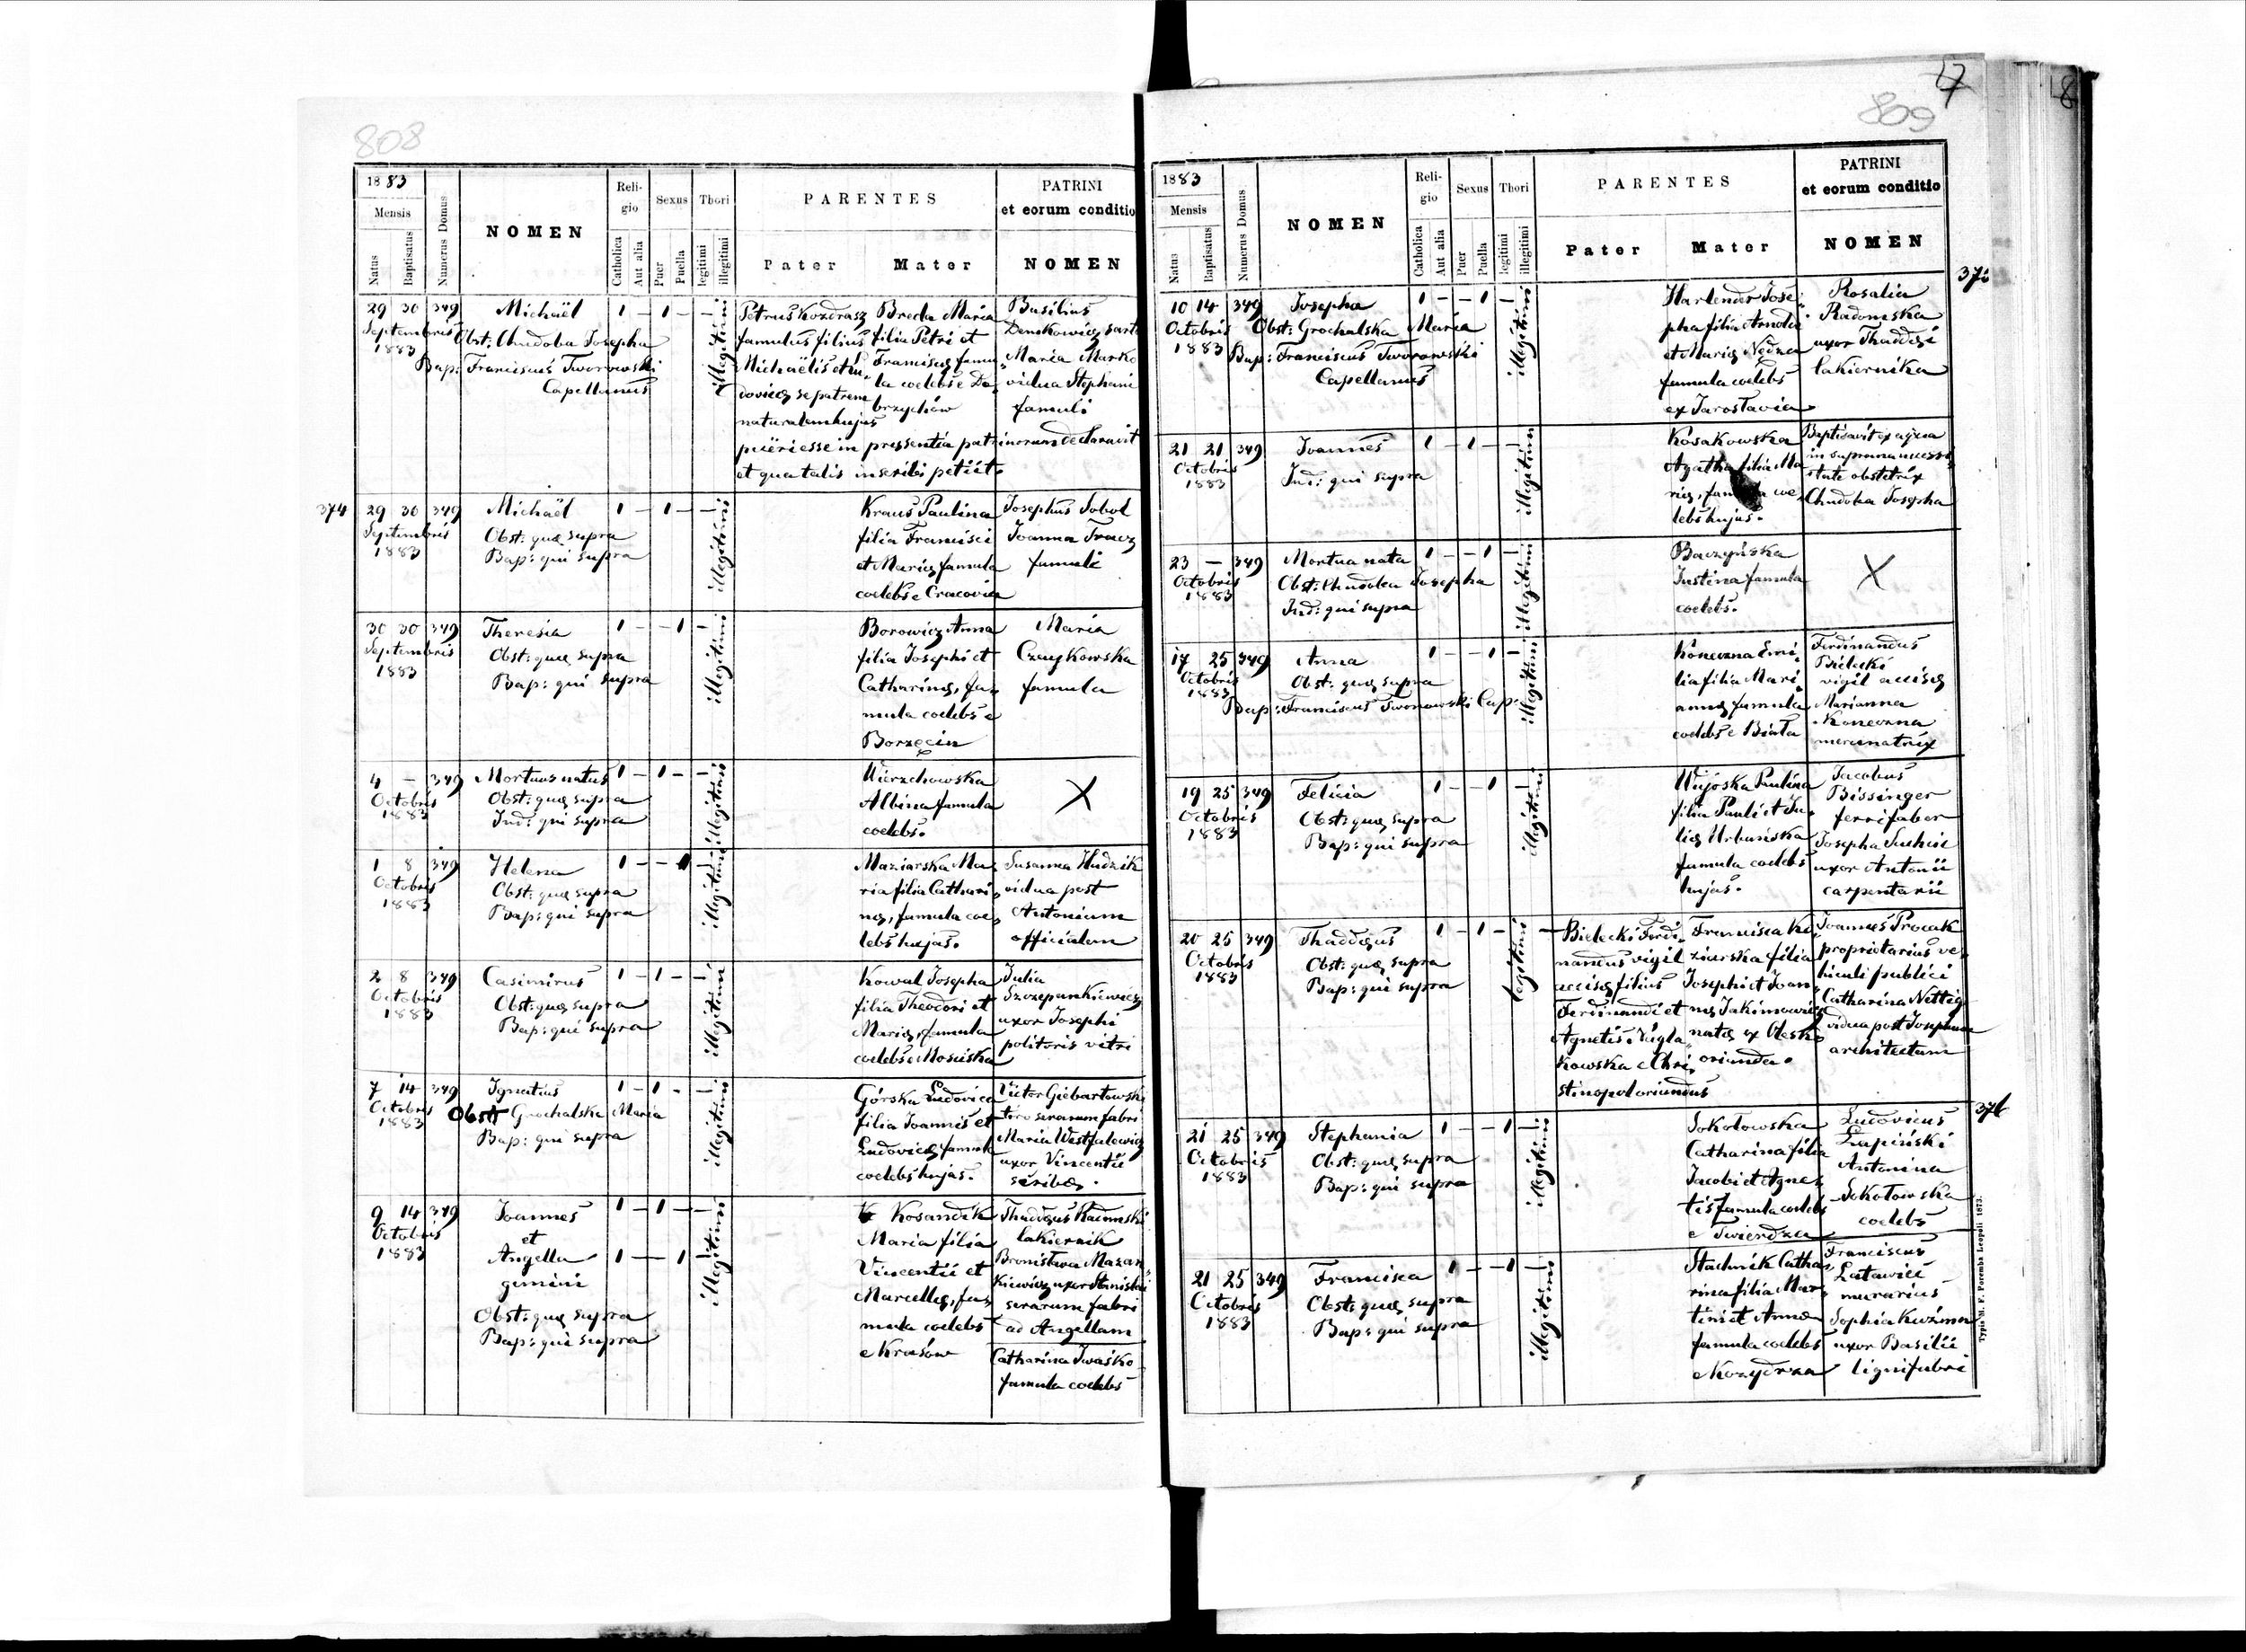 808
1883
Mensis
Natus
Baptisatus
Numerus Domus
NOMEN
Reli-
gio
Catholica
Aut alia
Sexus
Puer
Puella
Thori
legitimi
illegitimi
PARENTES
Pater
Mater
PATRINI
et eorum conditio
NOMEN
29 30 349
Septembris
1883
Michaël
Obst: Chudoba Josepha
Bap: Franciscus Tworowski
Capellanus
1 - 1 - -
illegitimi
Petrus Kozdrasz
famulus filius
Michaëlis et Lu-
dovicę se patrem
naturalem hujus
pueri esse in pressentia patrinorum declaravit
et qua talis inscribi petiit.
Breda Maria
filia Petri et
Franciscę famu-
la coelebs e Do-
brzychów
Basilius
Denskowicz sarto
Maria Marko
vidua Stephani
famuli
374
29 30 349
Septembris
1883
Michaël
Obst: quę supra
Bap: qui supra
1 - 1 - -
illegitimi
Kraus Paulina
filia Francisci
et Marię, famula
coelebs e Cracovia
Josephus Sobol
Joanna Tracz
famuli
30 30 349
Septembris
1883
Theresia
Obst: quę supra
Bap: qui supra
1 - - 1 -
illegitimi
Borowicz Anna
filia Josephi et
Catharinę, fa-
mula coelebs e
Borzęcin
Maria
Czaykowska
famula
4 - 349
Octobris
1883
Mortuus natus
Obst: quę supra
Ind: qui supra
1 - 1 - -
illegitimi
Wierzchowska
Albina famula
coelebs.
X
1 8 349
Octobris
1883
Helena
Obst: quę supra
Bap: qui supra
1 - - 1 -
illegitimi
Maziarska Ma-
ria filia Cathari-
nę, famula coe-
lebs hujas.
Susanna Hudzik
vidua post
Antonium
officialem
2 8 349
Octobris
1883
Casimirus
Obst: quę supra
Bap: qui supra
1 - 1 - -
illegitimi
Kowal Josepha
filia Theodori et
Marię, famula
coelebs e Mosciska
Julia
Szczepankiewicz
uxor Josephi
politoris vitri
7 14 349
Octobris
1883
Ignatius
Obst: Grochalska Maria
Bap: qui supra
1 - 1 - -
illegitimi
Górska Ludovica
filia Joannis et
Ludovicę famula
coelebs hujas.
Victor Giebartowski
tiro serarum fabri
Maria Westfalewicz
uxor Vincentii
scribae.
9 14 349
Octobris
1883
Joannes
et
Angella
gemini
Obst: quę supra
Bap: qui supra
1 - 1 - -
1 - - 1 -
illegitimi
Kosandiak
Maria filia
Vincentii et
Marcellę, fa-
mula coelebs
e Krasów
Thaddęus Radomski
lakiernik
Bronislava Mazan-
kiewicz uxor Stanislai
serarum fabri
ad Angellam
Catharina Iwaśko
famula coelebs
47
8
809
1883
Mensis
Natus
Baptisatus
Numerus Domus
NOMEN
Reli-
gio
Catholica
Aut alia
Sexus
Puer
Puella
Thori
legitimi
illegitimi
PARENTES
Pater
Mater
PATRINI
et eorum conditio
NOMEN
10 14 349
Octobris
1883
Josepha
Obst: Grochalska Maria
Bap: Franciscus Tworowski
Capellanus
1 - - 1 -
illegitimi
Harlender Jose-
pha filia Arnoldi
et Marię Nędza
famula coelebs
ex Jaroslavia
Rosalia
Radomska
uxor Thaddęi
lakiernika
21 21 349
Octobris
1883
Joannes
Ind: qui supra
1 - 1 - -
illegitimi
Kosakowska
Agatha filia Ma-
rię, famula coe-
lebs hujas.
Baptisavit ex aqua
in suprema necessi-
tate obstetrix
Chudoba Josepha
23 - 349
Octobris
1883
Mortua nata
Obst: Chudoba Josepha
Ind: qui supra
1 - - 1 -
illegitimi
Baczyńska
Justina famula
coelebs.
X
17 25 349
Octobris
1883
Anna
Obst: quę supra
Bap: Franciscus Tworowski Cap:
1 - - 1 -
illegitimi
Koneczna Emi-
lia filia Mari-
annę famula
coelebs e Biała
Ferdinandus
Bielecki
vigil accisę
Marianna
Koneczna
mercenatrix
19 25 349
Octobris
1883
Felicia
Obst: quę supra
Bap: qui supra
1 - - 1 -
illegitimi
Wujoska Paulina
filia Pauli et Ju-
lię Urbańska
famula coelebs
hujas.
Jacobus
Bissinger
ferrifaber
Josepha Suchoń
uxor Antonii
carpentarii
20 25 349
Octobris
1883
Thaddęus
Obst: quę supra
Bap: qui supra
1 - 1 - -
legitimi
Bielecki Ferdi-
nandus vigil
accisę filius
Ferdinandi et
Agnetis Żygla-
kowska e Chri-
stinopol oriundus
Francisca Ko-
ziarska filia
Josephi et Joan-
nę Jakimowicz
natę ex Olesko
oriunda.
Joannes Procak
proprietarius ve-
hiculi publici
Catharina Nettig
vidua post Josephum
architectum
21 25 349
Octobris
1883
Stephania
Obst: quę supra
Bap: qui supra
1 - - 1 -
illegitimi
Sokołowska
Catharina filia
Jacobi et Agne-
tis famula coelebs
e Twierdza
Ludovicus
Łapiński
Antonina
Sokołowska
coelebs
21 25 349
Octobris
1883
Francisca
Obst: quę supra
Bap: qui supra
1 - - 1 -
illegitimi
Stachnik Catha-
rina filia Mar-
tini et Annae
famula coelebs
Franciscus
Latawiec
murarius
Sophia Kuźma
uxor Basilii
lignifabri
Typis M. F. Poremba Leopoli 1873.